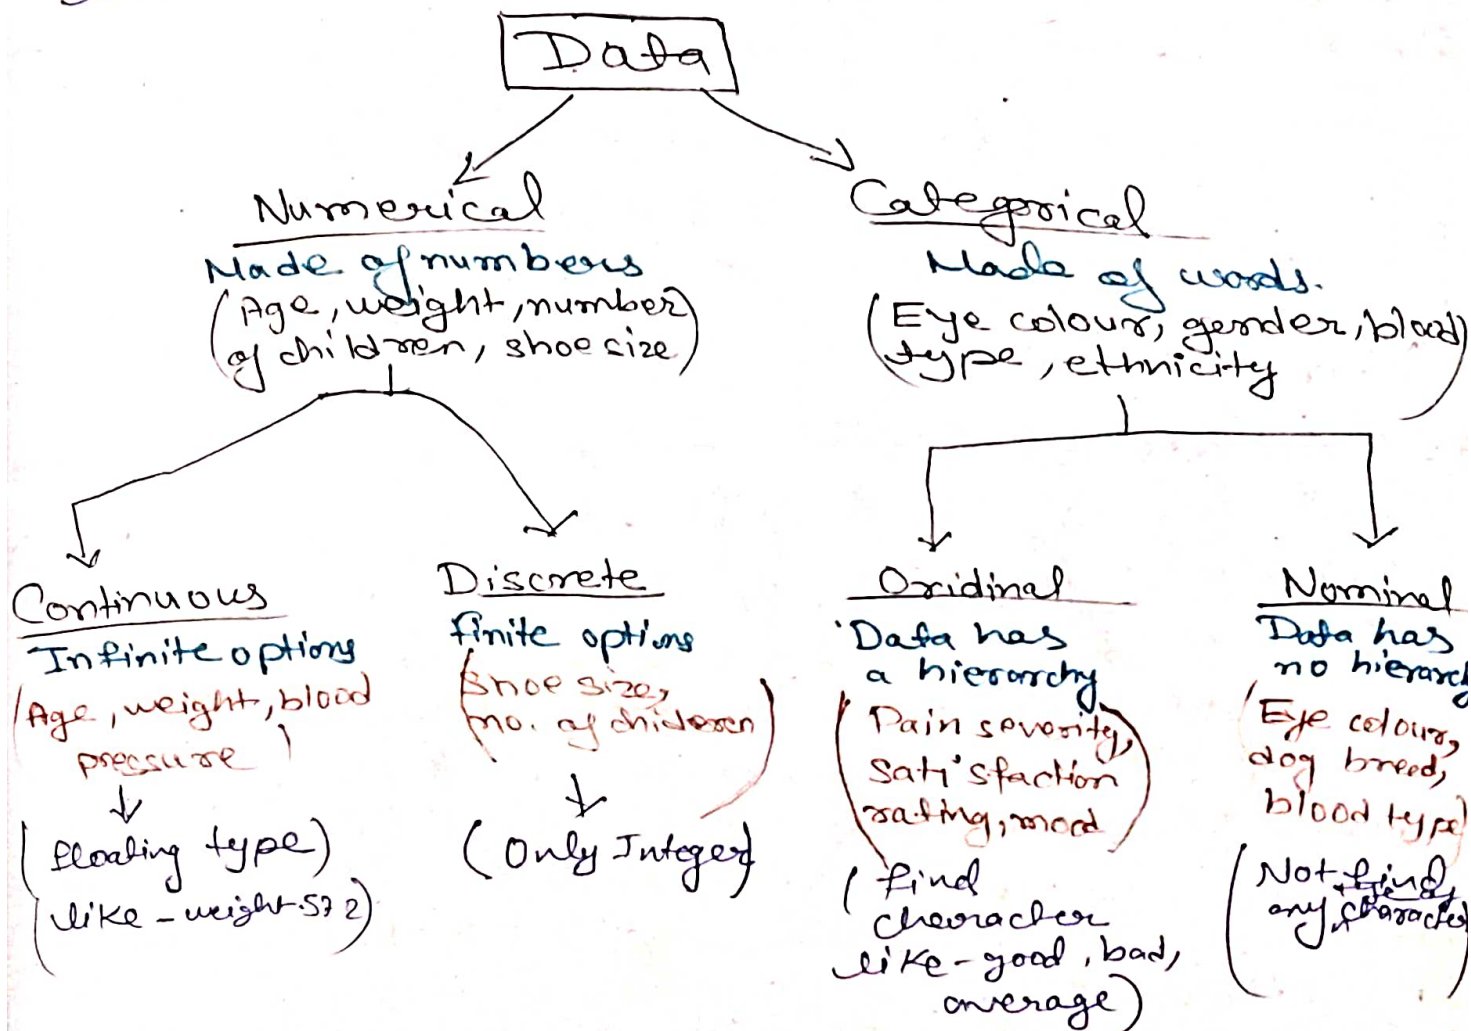 Data
Numerical
Made of numbers
(Age, weight, number
of children, shoe size)
Categorical
Made of words.
(Eye colour, gender, blood
type, ethnicity)
Continuous
Infinite options
(Age, weight, blood
pressure)
(floating type)
(like - weight
Discrete
finite options
(Shoe size,
no. of children)
(Only Integer)
Oridinal
Data has
a hierarchy
(Pain severity,
satisfaction
rating, mood)
(find
character
like - good, bad,
average)
Nominal
Data has
no hierarchy
(Eye colour,
dog breed,
blood type)
(Not find
any character